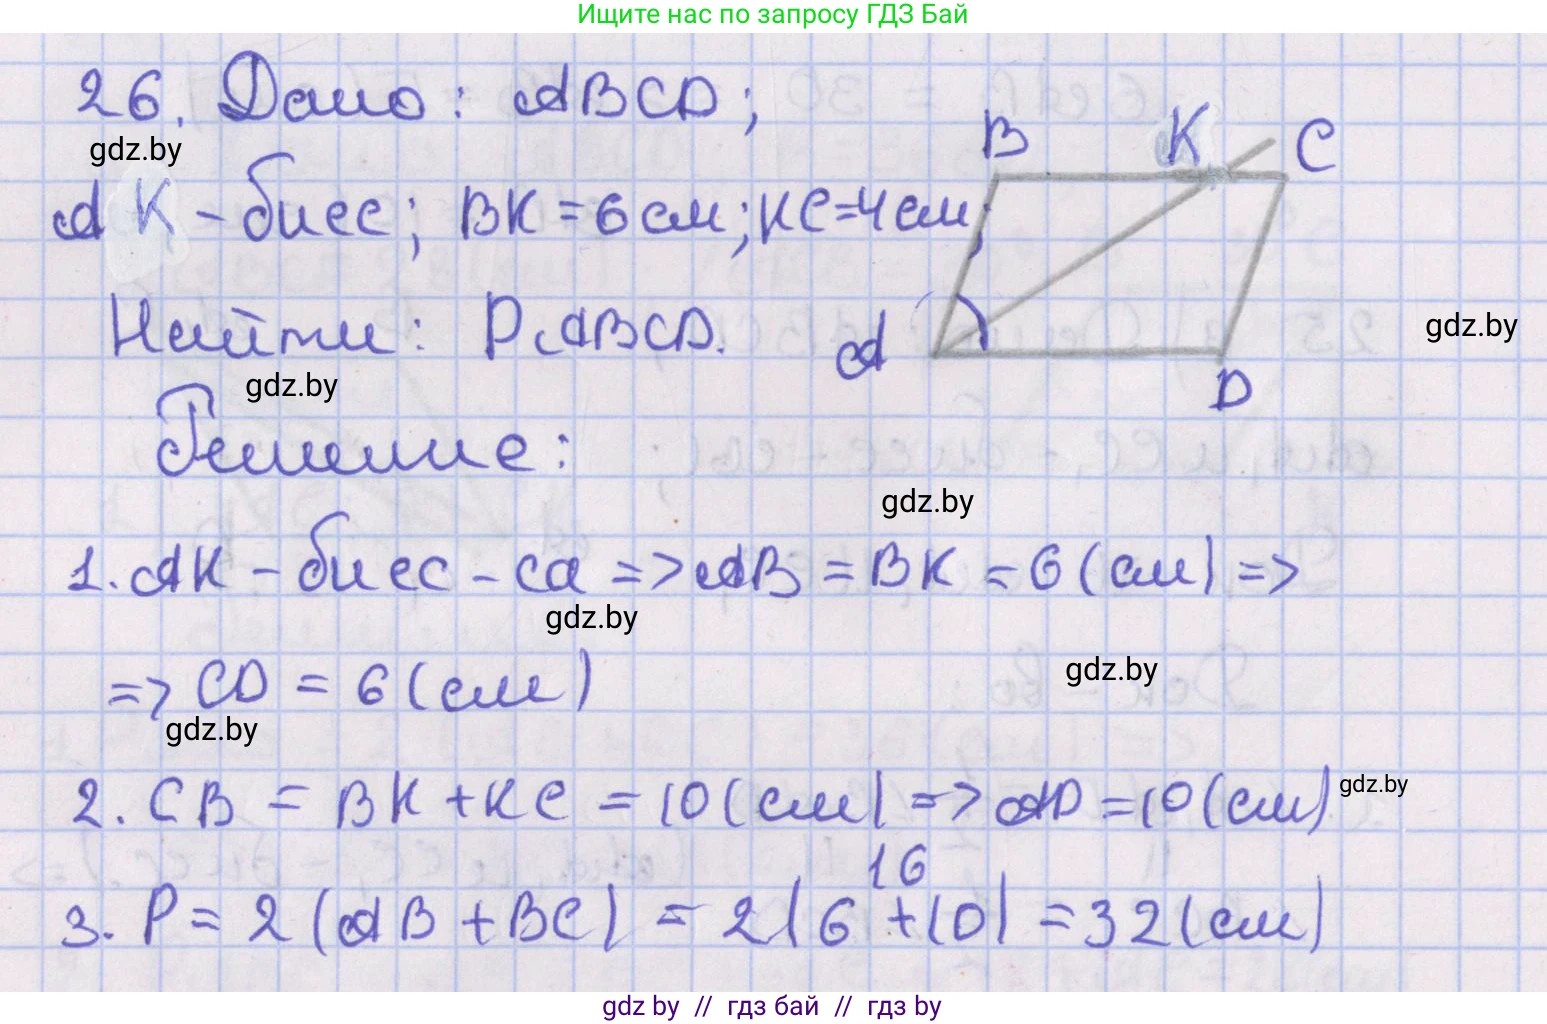 Ищите нас по запросу ГДЗ Бай
26. Дано: ABCD;
gdz.by
B K C
AK - бисс; BK = 6 см; KC = 4 см;
Найти: PABCD.
A
gdz.by
gdz.by
D
Решение:
gdz.by
1. AK - бисс - са => AB = BK = 6 (см) =>
gdz.by
=> CD = 6 (см)
gdz.by
gdz.by
2. CB = BK + KC = 10 (см) => AD = 10 (см)
gdz.by
16
3. P = 2 (AB + BC) = 2 (6 + 10) = 32 (см)
gdz by // гдз бай // гдз by